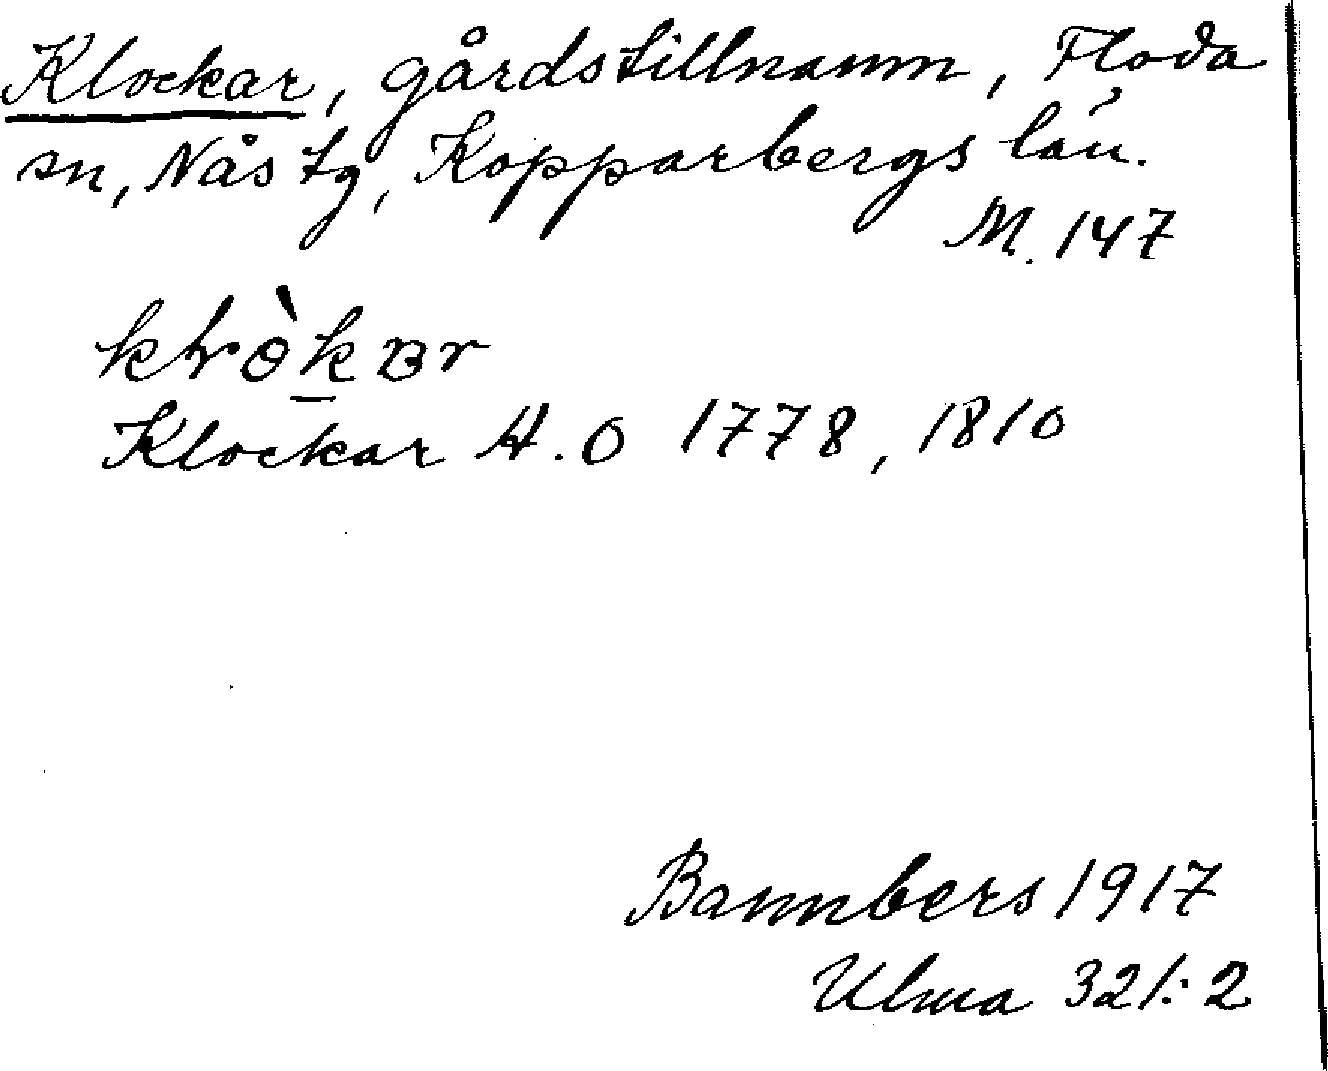 Klockar, gårdstillnamn, Floda
sn, Nås tg, Kopparbergs län.
M. 147
Klockar H.O 1778, 1810
Bannbers 1917
Ulma 321:2